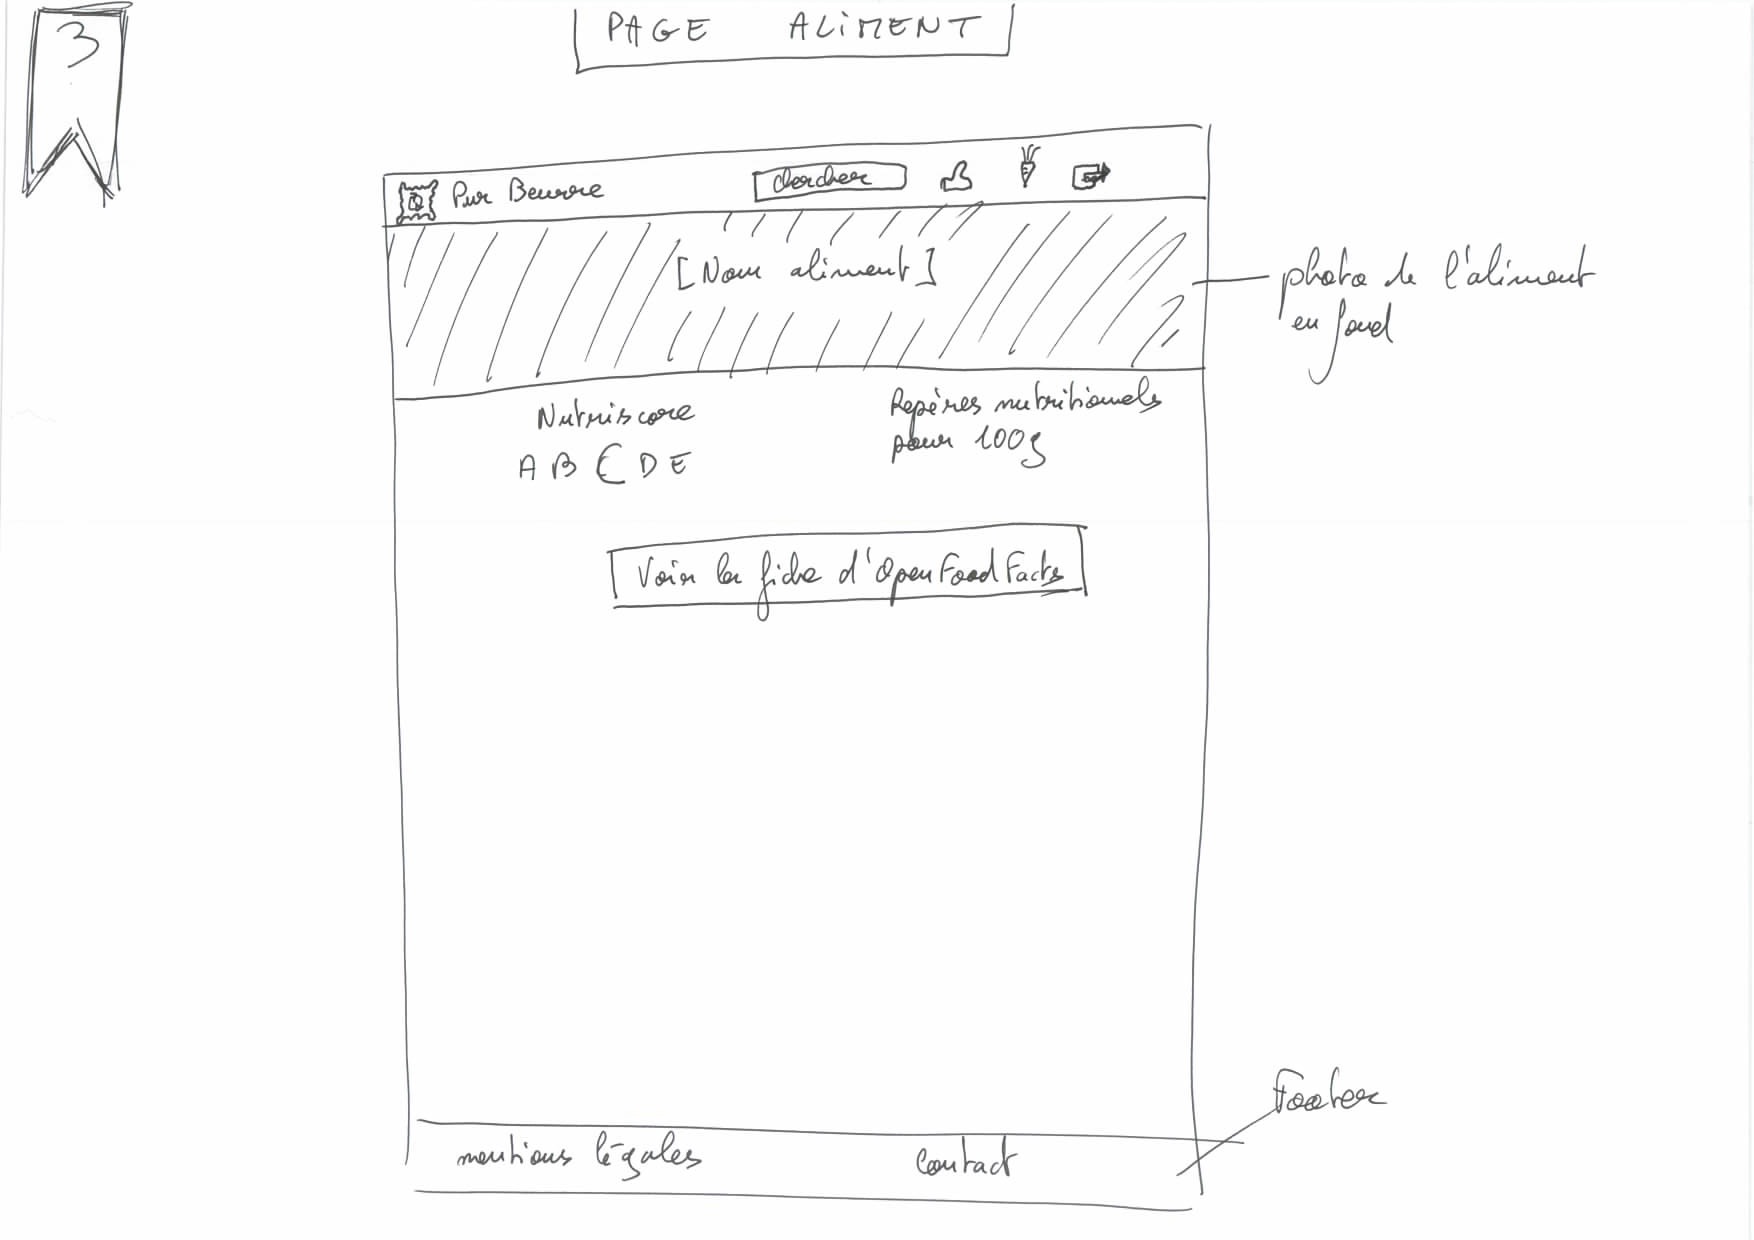 3
PAGE ALIMENT
Pur Beurre
chercher
[Nom aliment]
photo de l'aliment
en fond
Nutriscore
A B C D E
Repères nutritionnels
pour 100g
Voir la fiche d'OpenFoodFacts
Footer
mentions légales
Contact